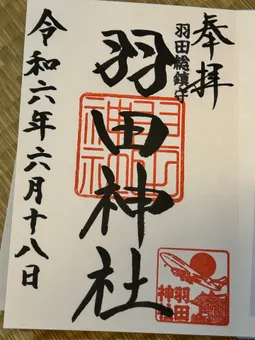 奉拝
羽田総鎮守
羽田神社
令和六年六月十八日
羽田
神社
羽田
神社